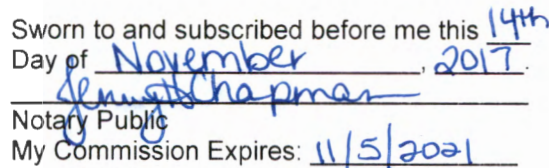 Sworn to and subscribed before me this 14th
Day of November, 2017.
Jenny H Chapman
Notary Public
My Commission Expires: 11/5/2021